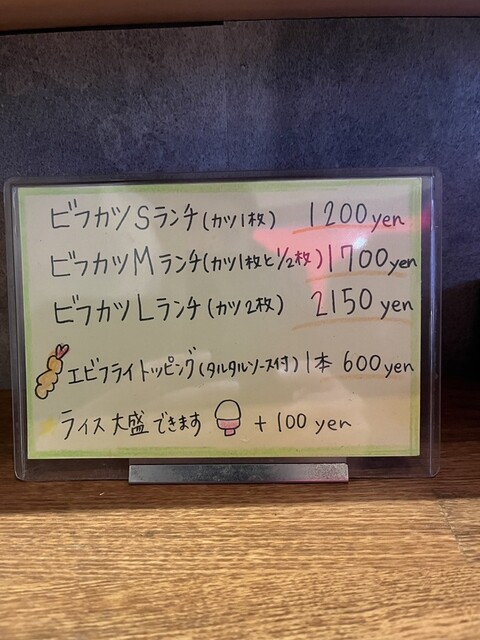 ビフカツSランチ(カツ1枚) 1200yen
ビフカツMランチ(カツ1枚と1/2枚) 1700yen
ビフカツLランチ(カツ2枚) 2150yen
エビフライトッピング(タルタルソース付) 1本 600yen
ライス大盛できます +100yen